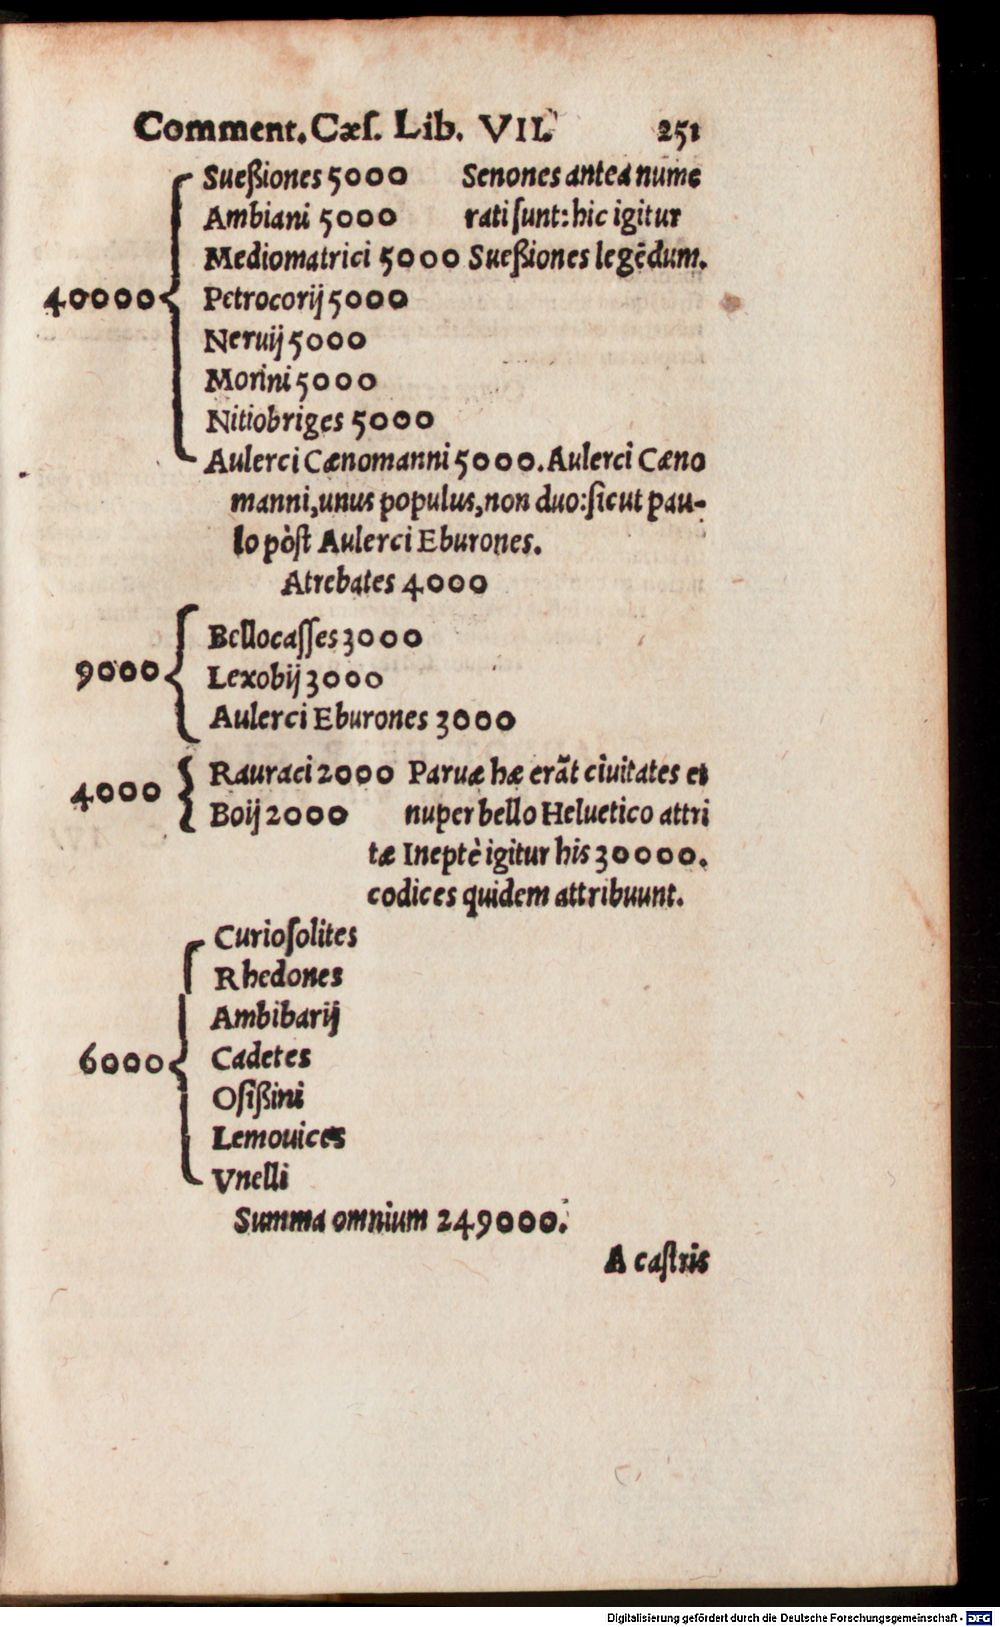 Comment. Cæs. Lib. VII. 251
Sueßiones 5000 Senones antea nume
Ambiani 5000 rati sunt: hic igitur
Mediomatrici 5000 Sueßiones legēdum.
40000 Petrocorij 5000
Neruij 5000
Morini 5000
Nitiobriges 5000
Aulerci Cænomanni 5000. Aulerci Cæno
manni, unus populus, non duo: sicut pau-
lo pòst Aulerci Eburones.
Atrebates 4000
Bellocasses 3000
9000 Lexobij 3000
Aulerci Eburones 3000
4000 Rauraci 2000 Paruæ hæ erāt ciuitates et
Boij 2000 nuper bello Heluetico attri
tæ Ineptè igitur his 30000.
codices quidem attribuunt.
Curiosolites
Rhedones
Ambibarij
6000 Cadetes
Osißini
Lemouices
Vnelli
Summa omnium 249000.
A castris
Digitalisierung gefördert durch die Deutsche Forschungsgemeinschaft - DFG